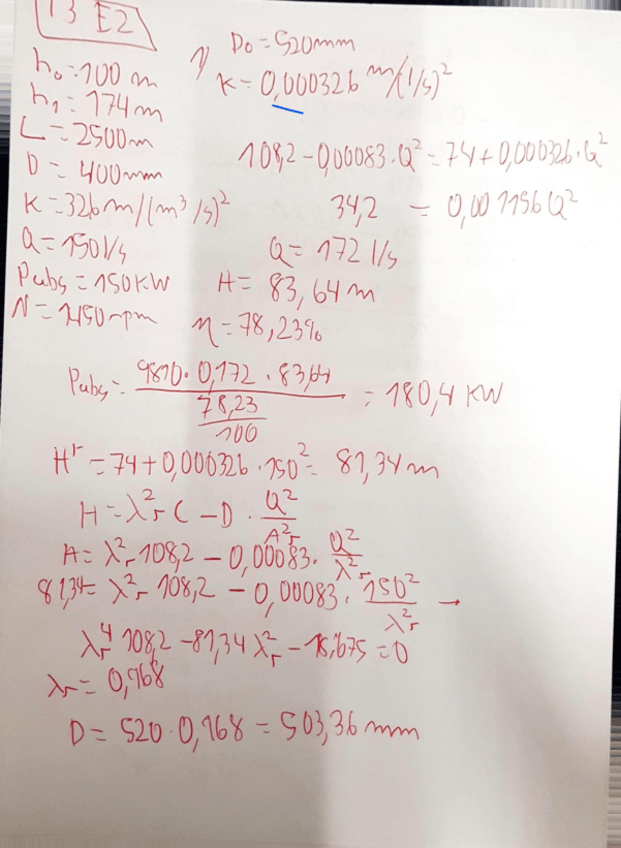 T3 E2
h₀=100 m
h₁=174m
L=2500m
D=400mm
K=326m/(m³/s)²
Q=150l/s
Pabs=150KW
N=1450rpm
1)
D₀=520mm
K=0,000326 m/(l/s)²
108,2-0,00083·Q²=74+0,000326·Q²
34,2 = 0,001156Q²
Q=172 l/s
H=83,64m
η=78,23%
Pabs= 9810·0,172·83,64 / (78,23/100) = 180,4 KW
H^r=74+0,000326·150²=81,34m
H=λ²r C-D·Q²/λ²r
H=λ²r 108,2-0,00083·Q²/λ²r
81,34=λ²r 108,2-0,00083·150²/λ²r →
λ⁴r 108,2-81,34λ²r-18,675=0
λr=0,968
D=520·0,968=503,36mm